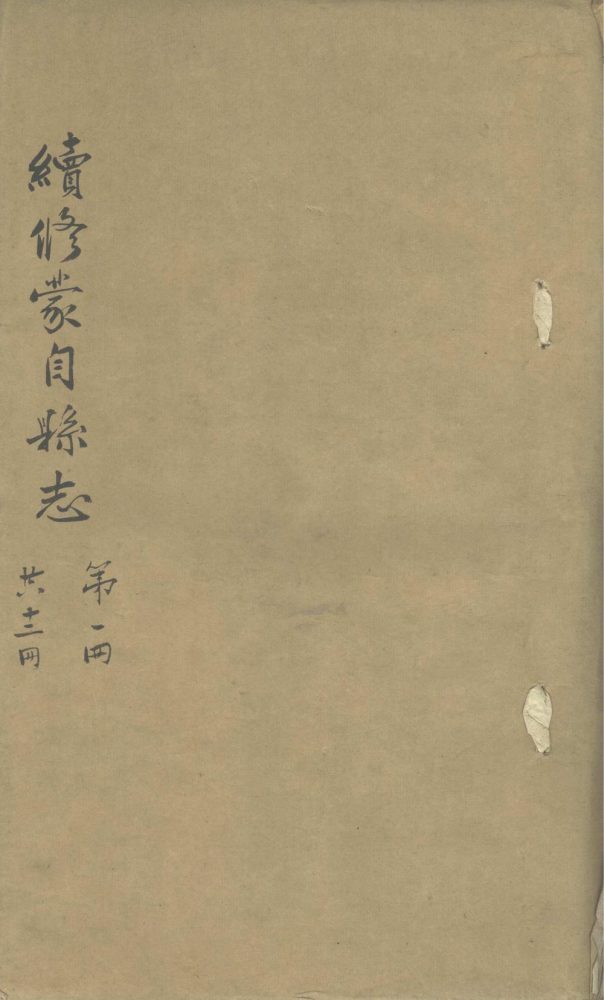 續修蒙自縣志
第一冊
共十二冊